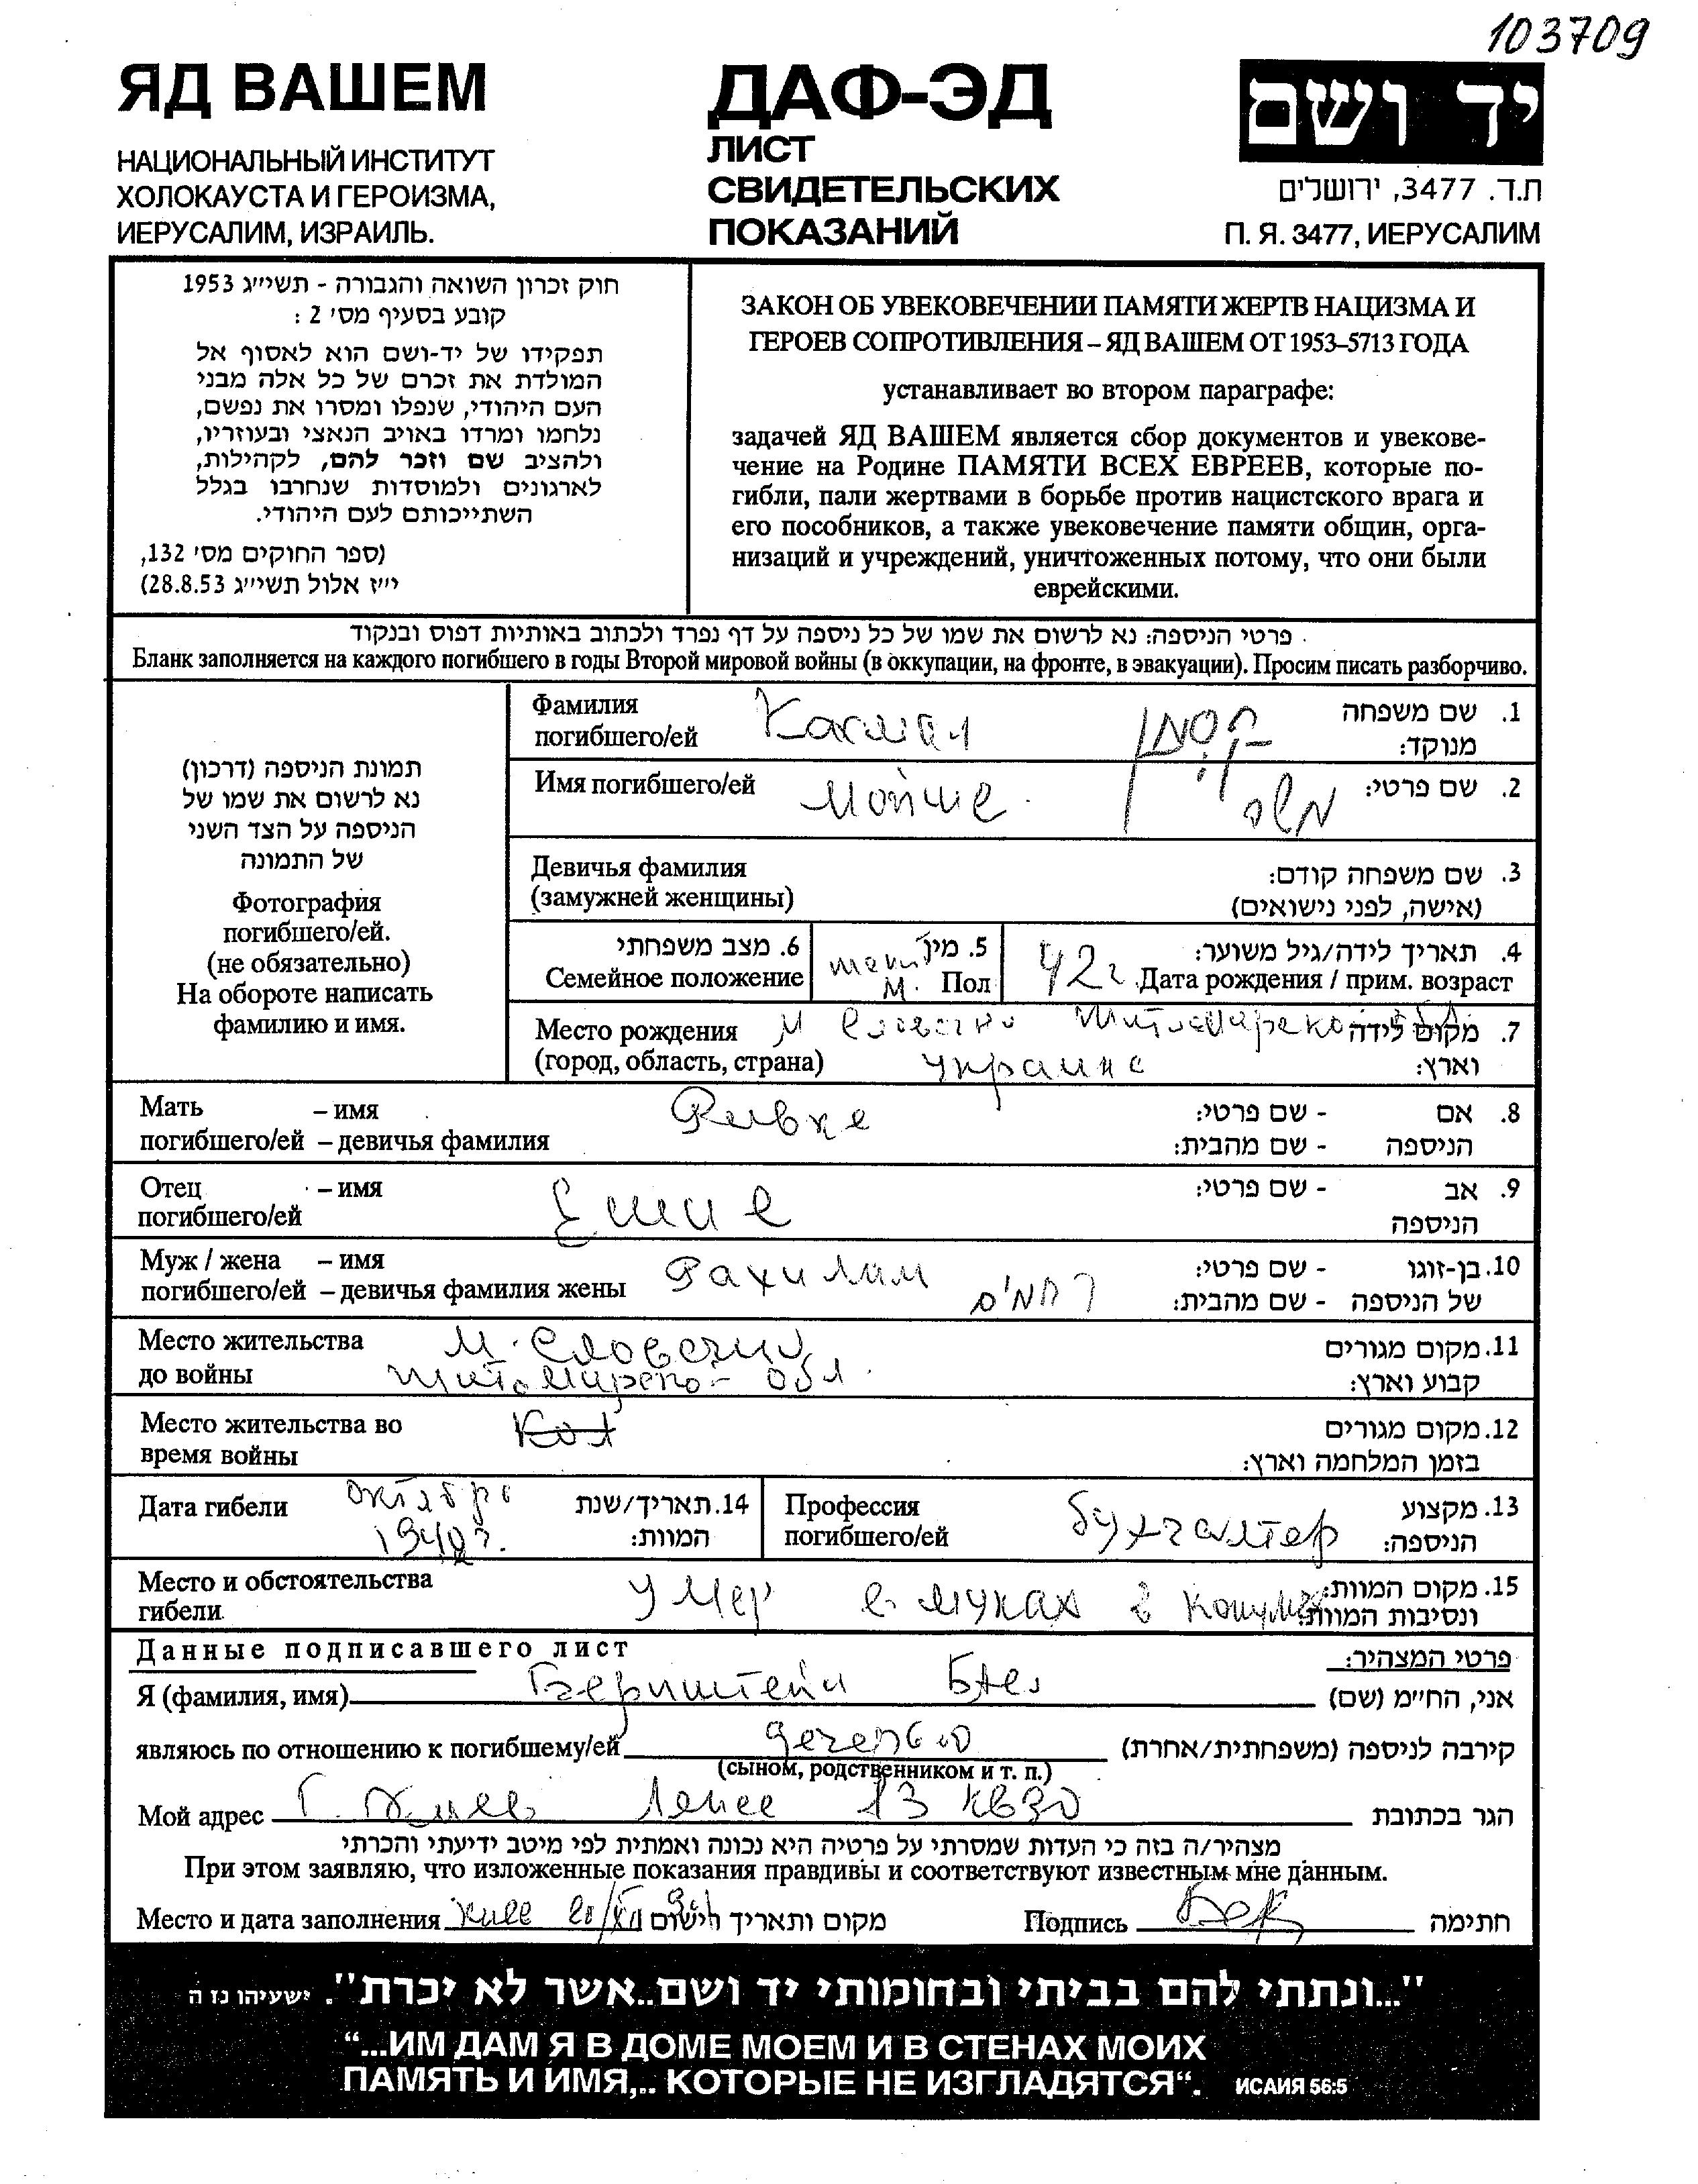 103709
ЯД ВАШЕМ
НАЦИОНАЛЬНЫЙ ИНСТИТУТ
ХОЛОКАУСТА И ГЕРОИЗМА,
ИЕРУСАЛИМ, ИЗРАИЛЬ.
ДАФ-ЭД
ЛИСТ
СВИДЕТЕЛЬСКИХ
ПОКАЗАНИЙ
יד ושם
ת.ד. 3477, ירושלים
П. Я. 3477, ИЕРУСАЛИМ
חוק זכרון השואה והגבורה - תשי״ג 1953
קובע בסעיף מס׳ 2 :
תפקידו של יד-ושם הוא לאסוף אל
המולדת את זכרם של כל אלה מבני
העם היהודי, שנפלו ומסרו את נפשם,
נלחמו ומרדו באויב הנאצי ובעוזריו,
ולהציב שם וזכר להם, לקהילות,
לארגונים ולמוסדות שנחרבו בגלל
השתייכותם לעם היהודי.
(ספר החוקים מס׳ 132,
י״ז אלול תשי״ג 28.8.53)
ЗАКОН ОБ УВЕКОВЕЧЕНИИ ПАМЯТИ ЖЕРТВ НАЦИЗМА И
ГЕРОЕВ СОПРОТИВЛЕНИЯ – ЯД ВАШЕМ ОТ 1953–5713 ГОДА
устанавливает во втором параграфе:
задачей ЯД ВАШЕМ является сбор документов и увекове-
чение на Родине ПАМЯТИ ВСЕХ ЕВРЕЕВ, которые по-
гибли, пали жертвами в борьбе против нацистского врага и
его пособников, а также увековечение памяти общин, орга-
низаций и учреждений, уничтоженных потому, что они были
еврейскими.
פרטי הניספה: נא לרשום את שמו של כל ניספה על דף נפרד ולכתוב באותיות דפוס ובנקוד
Бланк заполняется на каждого погибшего в годы Второй мировой войны (в оккупации, на фронте, в эвакуации). Просим писать разборчиво.
תמונת הניספה (דרכון)
נא לרשום את שמו של
הניספה על הצד השני
של התמונה
Фотография
погибшего/ей.
(не обязательно)
На обороте написать
фамилию и имя.
Фамилия
погибшего/ей
1. שם משפחה
מנוקד:
Имя погибшего/ей Мойше משה 2. שם פרטי:
Девичья фамилия
(замужней женщины)
3. שם משפחה קודם:
(אישה, לפני נישואים)
6. מצב משפחתי
Семейное положение
5. מין
М. Пол
4. תאריך לידה/גיל משוער:
42 г. Дата рождения / прим. возраст
Место рождения м Словечно Житомирской обл 7. מקום לידה
(город, область, страна) Украина וארץ:
Мать – имя Ривке 8. אם - שם פרטי:
погибшего/ей – девичья фамилия הניספה - שם מהבית:
Отец – имя 9. אב - שם פרטי:
погибшего/ей הניספה
Муж / жена – имя 10. בן-זוגו - שם פרטי:
погибшего/ей – девичья фамилия жены של הניספה - שם מהבית:
Место жительства м. Словечно 11. מקום מגורים
до войны Житомирско- обл. קבוע וארץ:
Место жительства во 12. מקום מגורים
время войны בזמן המלחמה וארץ:
Дата гибели октябре 14. תאריך/שנת
המוות:
Профессия бухгалтер 13. מקצוע
погибшего/ей הניספה:
Место и обстоятельства Умер в муках в 15. מקום המוות:
гибели ונסיבות המוות:
Данные подписавшего лист פרטי המצהיר:
Я (фамилия, имя) Бернштейн אני, הח״מ (שם)
являюсь по отношению к погибшему/ей дочерью קירבה לניספה (משפחתית/אחרת)
(сыном, родственником и т. п.)
Мой адрес г. Киев 13 кв 30 הגר בכתובת
מצהיר/ה בזה כי העדות שמסרתי על פרטיה היא נכונה ואמתית לפי מיטב ידיעתי והכרתי
При этом заявляю, что изложенные показания правдивы и соответствуют известным мне данным.
Место и дата заполнения Киев מקום ותאריך הישום Подпись חתימה
"...ונתתי להם בביתי ובחומותי יד ושם..אשר לא יכרת". ישעיהו נז ה
“...ИМ ДАМ Я В ДОМЕ МОЕМ И В СТЕНАХ МОИХ
ПАМЯТЬ И ИМЯ,.. КОТОРЫЕ НЕ ИЗГЛАДЯТСЯ“. ИСАИЯ 56:5